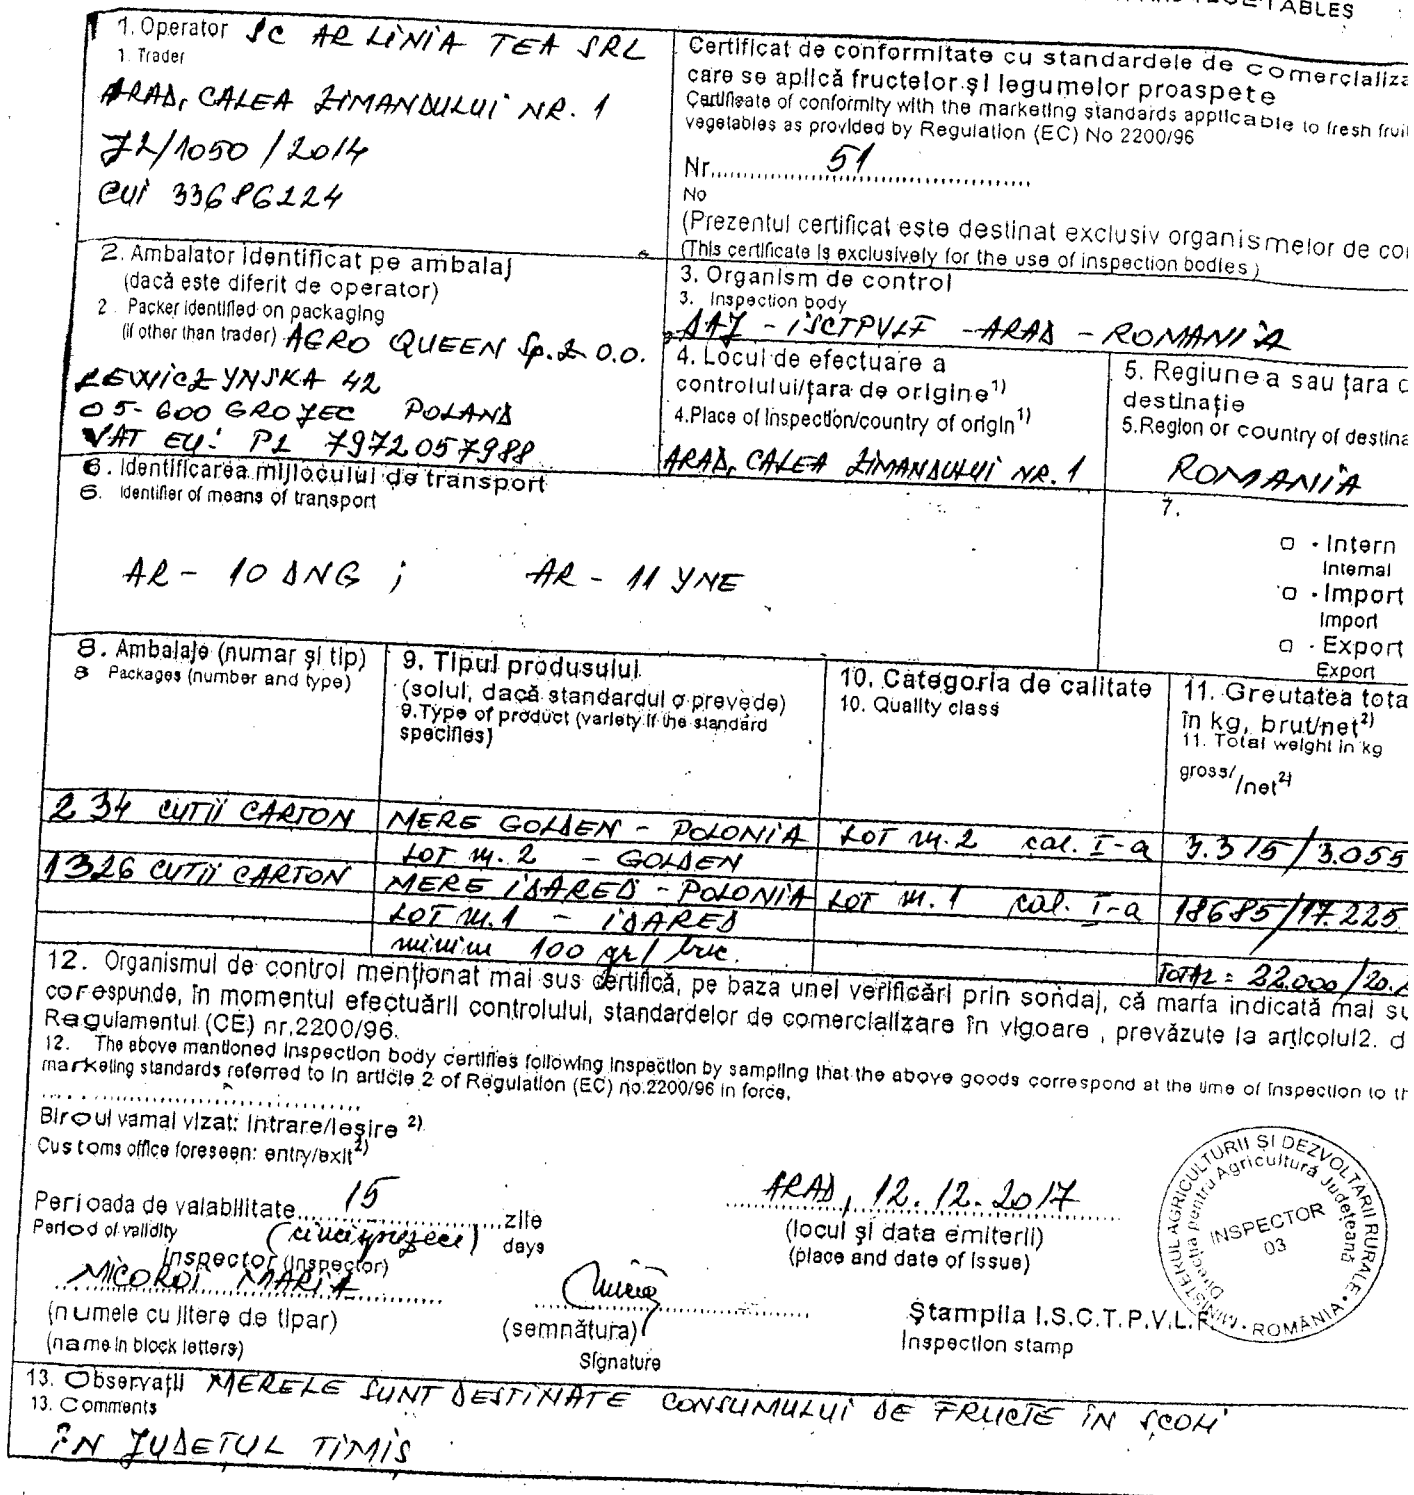 TABLES
1. Operator SC AR LINIA TEA SRL
1. Trader
ARAD, CALEA ZIMANDULUI NR. 1
J2/1050/2014
CUI 33686224
Certificat de conformitate cu standardele de comercializa
care se aplică fructelor și legumelor proaspete
Certificate of conformity with the marketing standards applicable to fresh frui
vegetables as provided by Regulation (EC) No 2200/96
Nr. 51
No
(Prezentul certificat este destinat exclusiv organismelor de co
(This certificate is exclusively for the use of inspection bodies)
2. Ambalator identificat pe ambalaj
(dacă este diferit de operator)
2. Packer identified on packaging
(if other than trader) AGRO QUEEN Sp. z O.O.
LEWICZYNSKA 42
05-600 GROJEC POLAND
VAT EU: PL 7972057988
3. Organism de control
3. Inspection body
DAJ - ISCTPVLF - ARAD - ROMANIA
4. Locul de efectuare a
controlului/țara de origine 1)
4.Place of Inspection/country of origin 1)
ARAD, CALEA ZIMANDULUI NR. 1
5. Regiunea sau țara d
destinație
5.Region or country of destina
ROMANIA
6. Identificarea mijlocului de transport
6. Identifier of means of transport
AR - 10 DNG ; AR - 11 YNE
7.
- Intern
Internal
- Import
Import
- Export
Export
8. Ambalaje (numar și tip)
8 Packages (number and type)
9. Tipul produsului
(soiul, dacă standardul o prevede)
9.Type of product (variety if the standard
specifies)
10. Categoria de calitate
10. Quality class
11. Greutatea tota
în kg, brut/net 2)
11. Total weight in kg
gross/ /net 2)
234 CUTII CARTON MERE GOLDEN - POLONIA LOT nr. 2 cal. I-a 3.315/3.055
LOT nr. 2 - GOLDEN
1326 CUTII CARTON MERE IDARED - POLONIA LOT nr. 1 cal. I-a 18685/17.225
LOT nr. 1 - IDARED
minim 100 gr/ buc.
TOTAL = 22.000/20.
12. Organismul de control menționat mai sus certifică, pe baza unei verificări prin sondaj, că marfa indicată mai su
corespunde, în momentul efectuării controlului, standardelor de comercializare în vigoare, prevăzute la articolul2. d
Regulamentul (CE) nr.2200/96.
12. The above mentioned inspection body certifies following inspection by sampling that the above goods correspond at the time of inspection to th
marketing standards referred to in article 2 of Regulation (EC) no.2200/96 in force.
Biroul vamal vizat: intrare/ieșire 2)
Customs office foreseen: entry/exit 2)
Perioada de valabilitate 15 zile
Period of validity (cincisprezece) days
ARAD, 12.12.2017
(locul și data emiterii)
(place and date of issue)
Inspector (Inspector)
MICOROI MARIA
(numele cu litere de tipar)
(name in block letters)
(semnătura)
Signature
Ștampila I.S.C.T.P.V.L.F.
Inspection stamp
MINISTERUL AGRICULTURII ȘI DEZVOLTĂRII RURALE • ROMÂNIA •
Direcția pentru Agricultură Județeană
INSPECTOR
03
13. Observații MERELE SUNT DESTINATE CONSUMULUI DE FRUCTE ÎN ȘCOLI
13. Comments
ÎN JUDEȚUL TIMIȘ